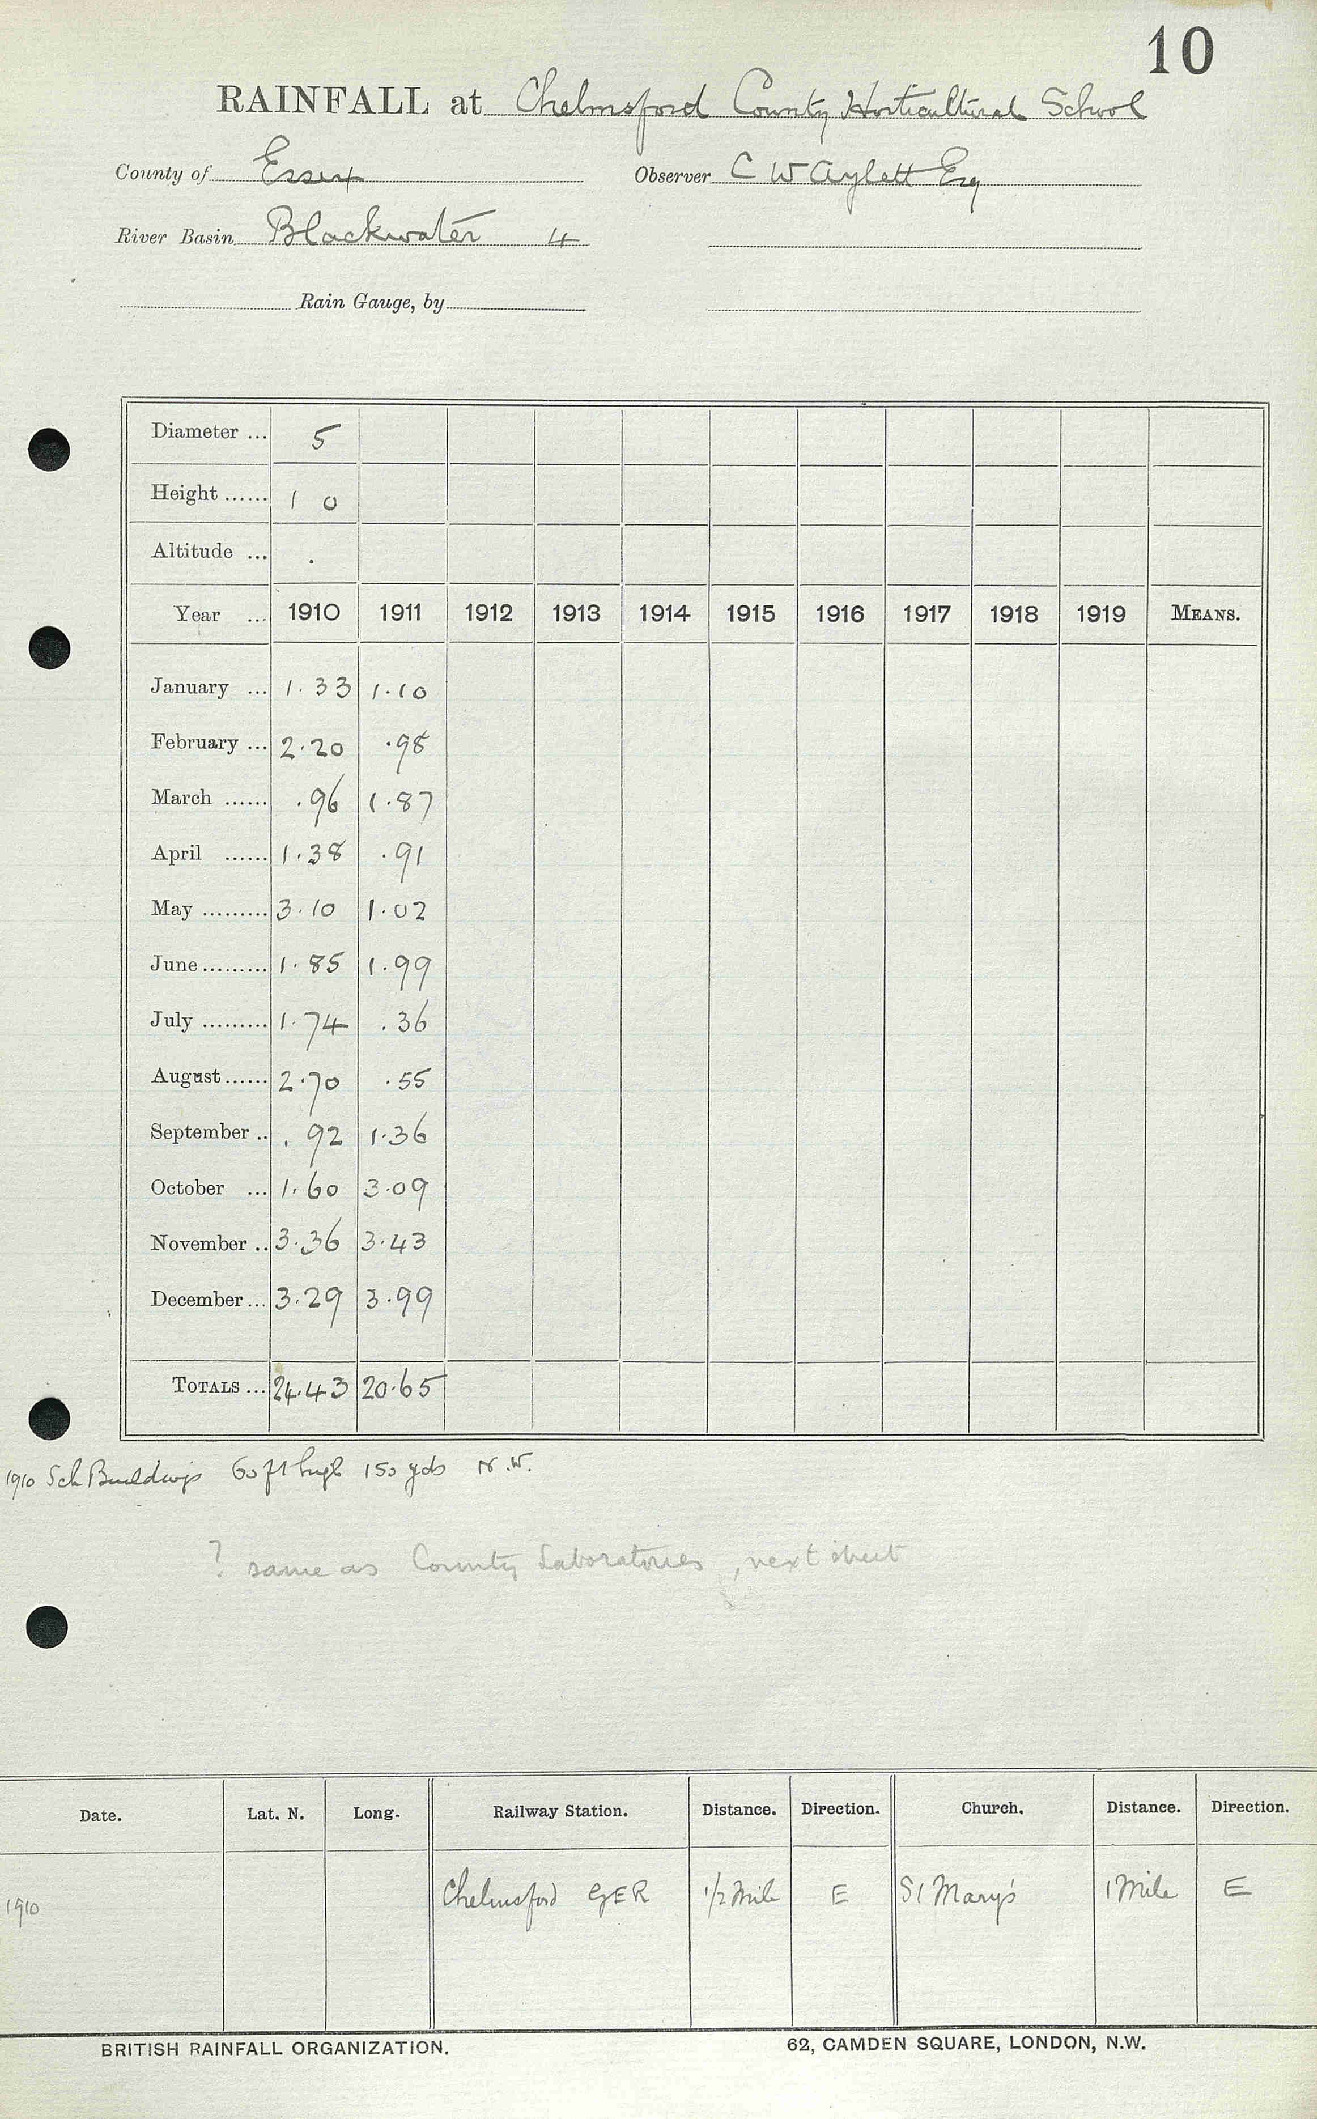 10
RAINFALL at Chelmsford County Horticultural School
County of Essex Observer C W Aylett Esq
River Basin Blackwater 4
Rain Gauge, by
Diameter ... 5
Height ...... 1 0
Altitude ... .
Year ... 1910 1911 1912 1913 1914 1915 1916 1917 1918 1919 MEANS.
January ... 1.33 1.10
February ... 2.20 .98
March ...... .96 1.87
April ...... 1.38 .91
May ......... 3.10 1.02
June ......... 1.85 1.99
July ......... 1.74 .36
August ...... 2.70 .55
September .. .92 1.36
October ... 1.60 3.09
November .. 3.36 3.43
December ... 3.29 3.99
TOTALS ... 24.43 20.65
1910 Sch Buildings 60 ft high 150 yds N.W.
? same as County Laboratories, next sheet
Date. Lat. N. Long. Railway Station. Distance. Direction. Church. Distance. Direction.
1910 Chelmsford GER 1/2 Mile E St Mary's 1 Mile E
BRITISH RAINFALL ORGANIZATION. 62, CAMDEN SQUARE, LONDON, N.W.